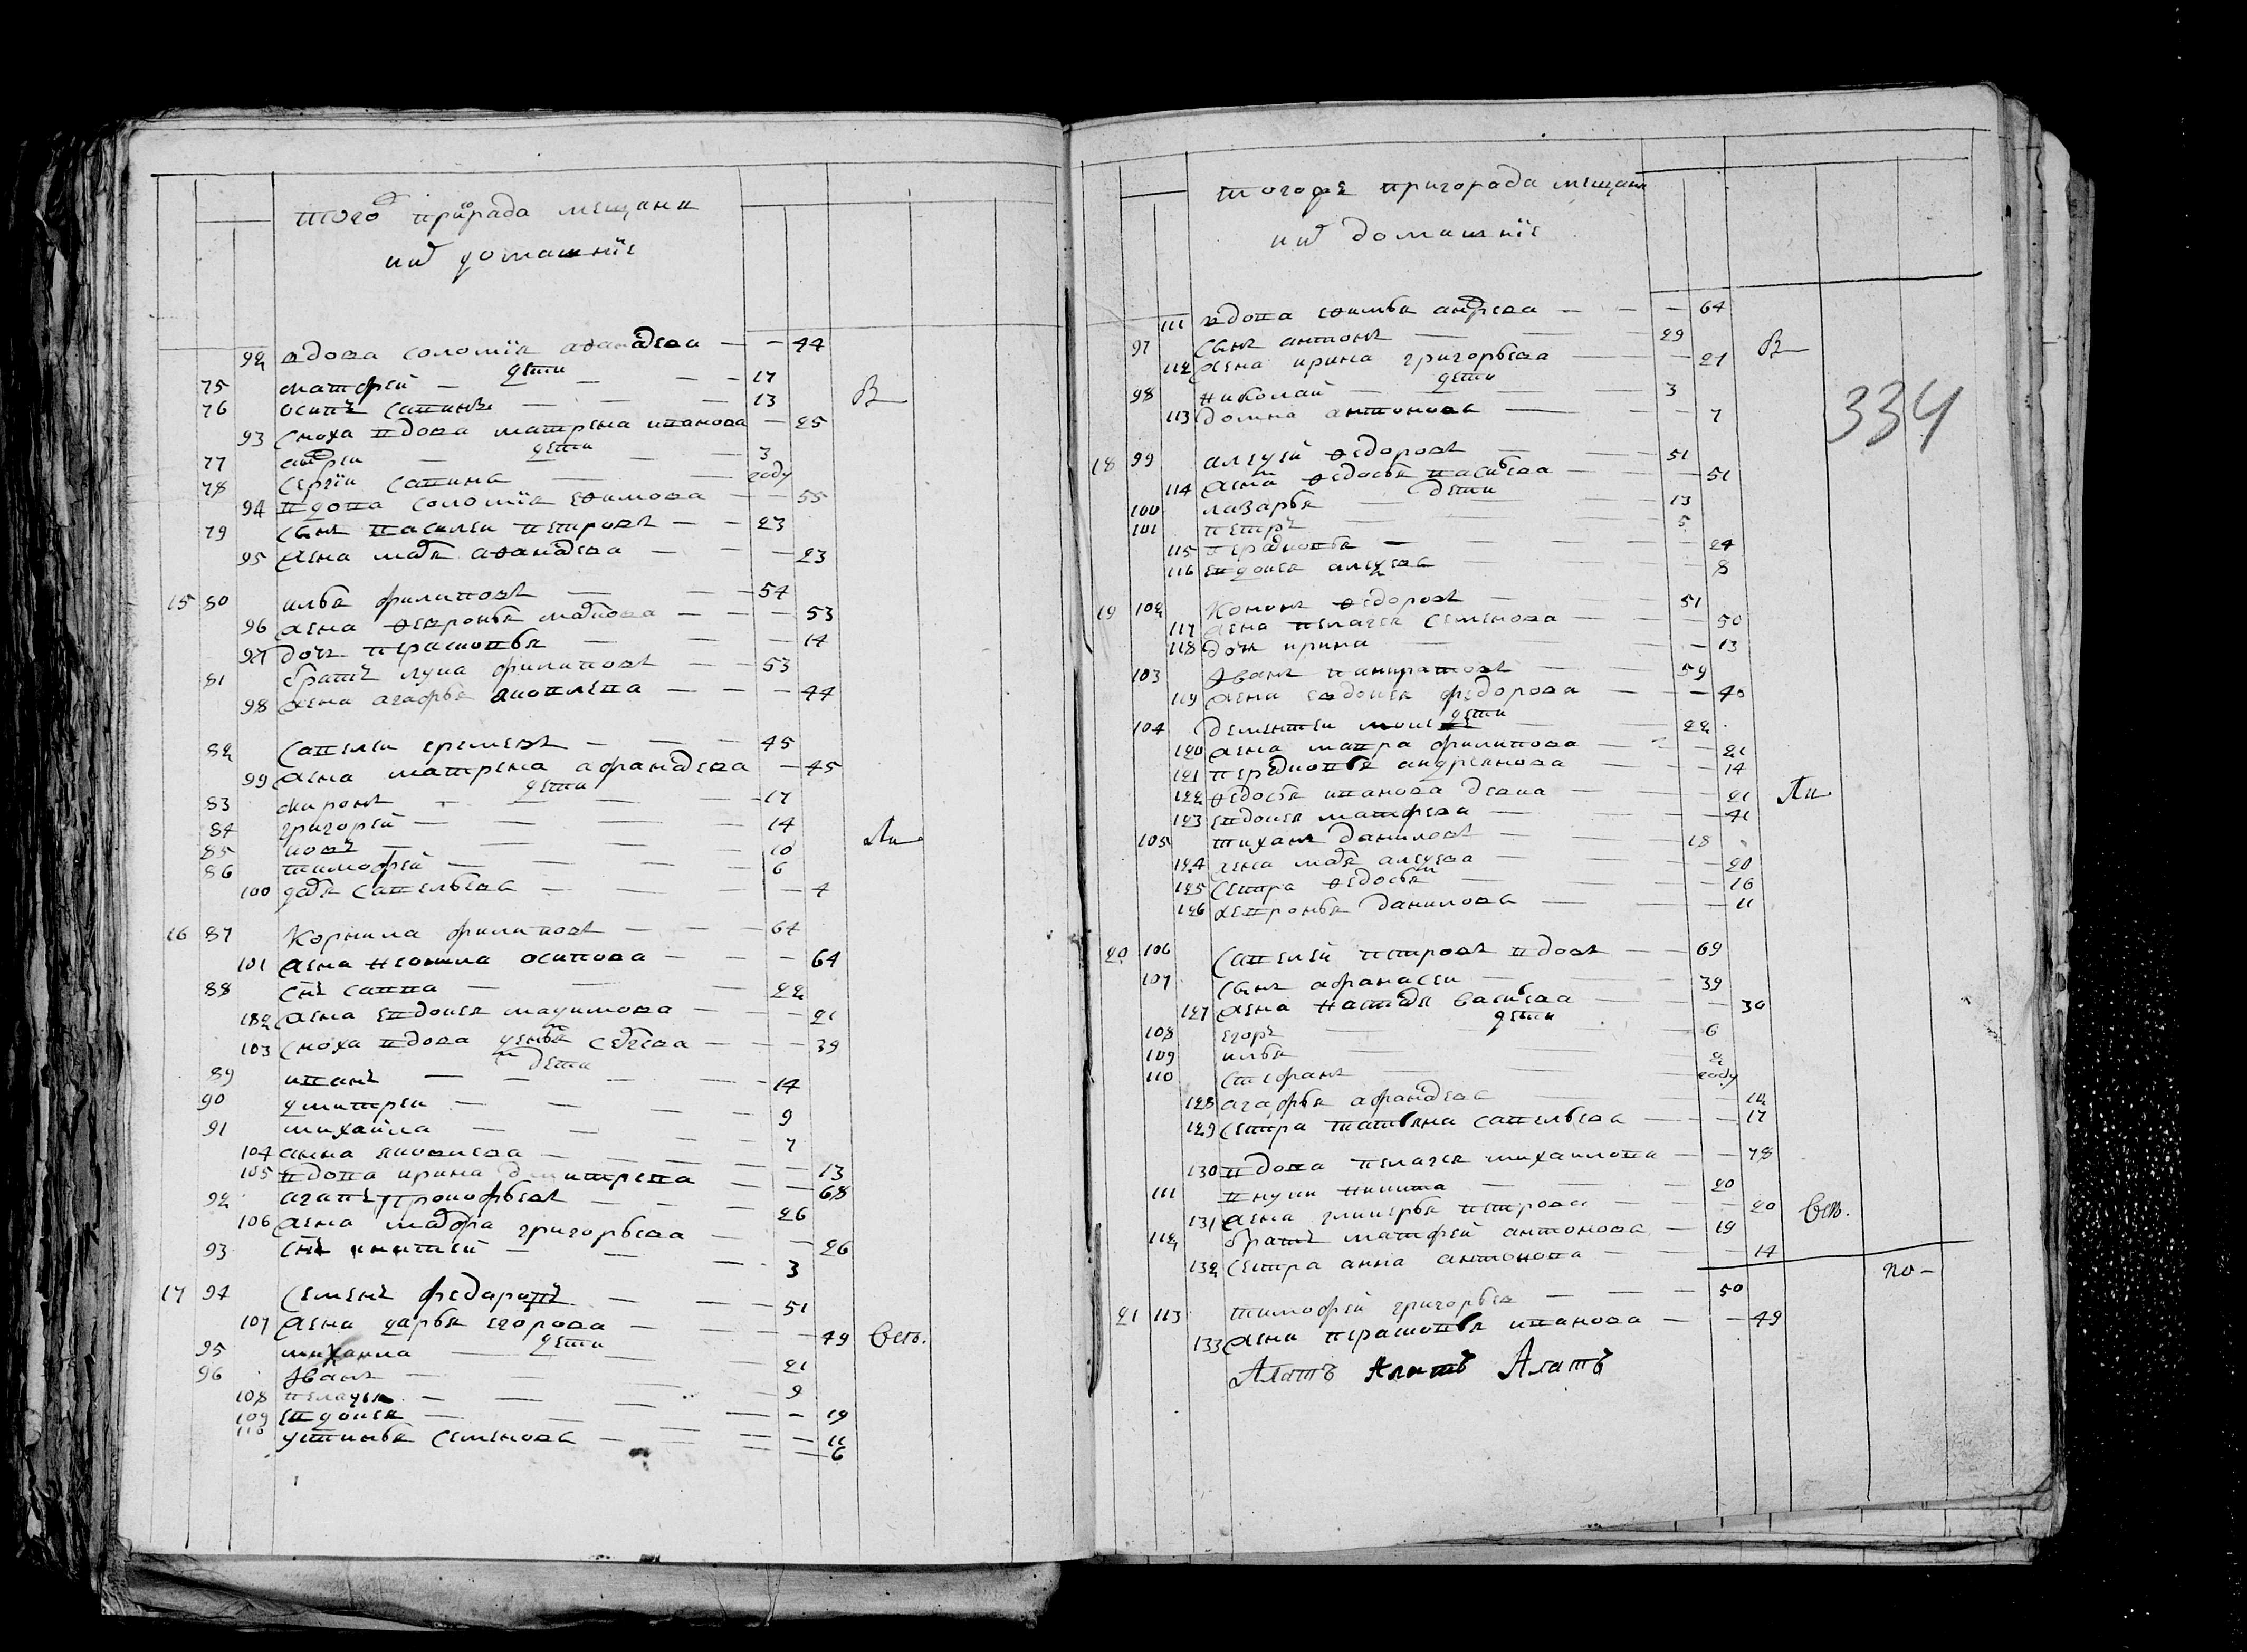 того пригорода мещаня
их домашнїе
92 вдова соломїя афанасева — — 44
дети
75 матфей — — — 17
76 осипъ савинъ — — — 13 В
93 сноха вдова матрена иванова — 25
дети
77 андреи — — — 3
78 сергїи савина — — году
94 вдова соломїя ефимова — — 55
79 сынъ василеи петровъ — — 23
95 жена марья афанасева — — — 23
15 80 илья филиповъ — — 54
96 жена февронья маркова — — — 53
97 дочь парасковья — — — 14
81 братъ лука филиповъ — — 53
98 жена агафья яковлева — — — 44
82 савелеи еремеевъ — — — 45
99 жена матрена афанасева — 45
дети
83 миронъ — — — 17
84 григорей — — — 14
85 иовъ — — — 10 Ли
86 тимофей — — — 6
100 дарья савельева — — — 4
16 87 Корнила филиповъ — — — 64
101 жена неонила осипова — — — 64
88 сынъ савва — — — 22
102 жена евдокея максимова — — — 21
103 сноха вдова ксенья сергеева — — — 39
дети
89 иванъ — — — 14
90 дмитреи — — — 9
91 михайла — — — 7
104 анна яковлева — — — 13
105 вдова ирина дмитрева — — 68
92 агапъ прокофьевъ — — — 26
106 жена марфа григорьева — — 26
93 сынъ игнатей — — — 3
17 94 Семенъ федаровъ — — — 51
107 жена дарья егорова — — — 49 Ѳев.
дети
95 михаила — — — 21
96 Иванъ — — — 9
108 пелагея — — — 19
109 евдокея — — — 11
110 устинья семенова — — — 6
тогоже пригорода мещаня
их домашнїе
334
111 вдова ефимья андреева — — — 64
97 сынъ антонъ — — 29 В
112 жена ирина григорьева — — 21
дети
98 николай — — 3
113 домна антонова — — 7
18 99 алексей федоровъ — — 51
114 жена федосья васильева — — 51
дети
100 лазарь — — 13
101 петръ — — 5
115 парасковья — — — 24
116 евдокея алексева — — 8
19 102 Кононъ федоровъ — — 51
117 жена пелагея семенова — — 50
118 дочь ирина — — 13
103 Иванъ панкратовъ — — 59
119 жена евдокея федорова — — 40
дети
104 дементеи — — 22
120 жена мавра филипова — — 21
121 парасковья андреянова — — 14
122 федосья иванова — — 21 Ли
123 евдокея матфева — — 41
105 тиханъ даниловъ — — 18
124 жена марья алексева — — 20
125 сестра федосья — — 16
126 хевронья данилова — — 11
20 106 Савелей петровъ вдовъ — — 69
107 сынъ афанасеи — — 39
127 жена настасья васильева — — 30
дети
108 егоръ — — 6
109 илья — — 2
110 стефанъ — — году
128 агафья афанасева — — 12
129 сестра татьяна савельева — — 17
130 вдова пелагея михаилова — — 78
111 внуки никита — — — 20
131 жена гликерья петрова — — 20 Ѳев.
112 братъ матфей антонова — 19
132 сестра анна антонова — — 14
по —
21 113 тимофей григорьев — — — 50
133 жена парасковья иванова — — 49
Алатъ Алатъ Алатъ